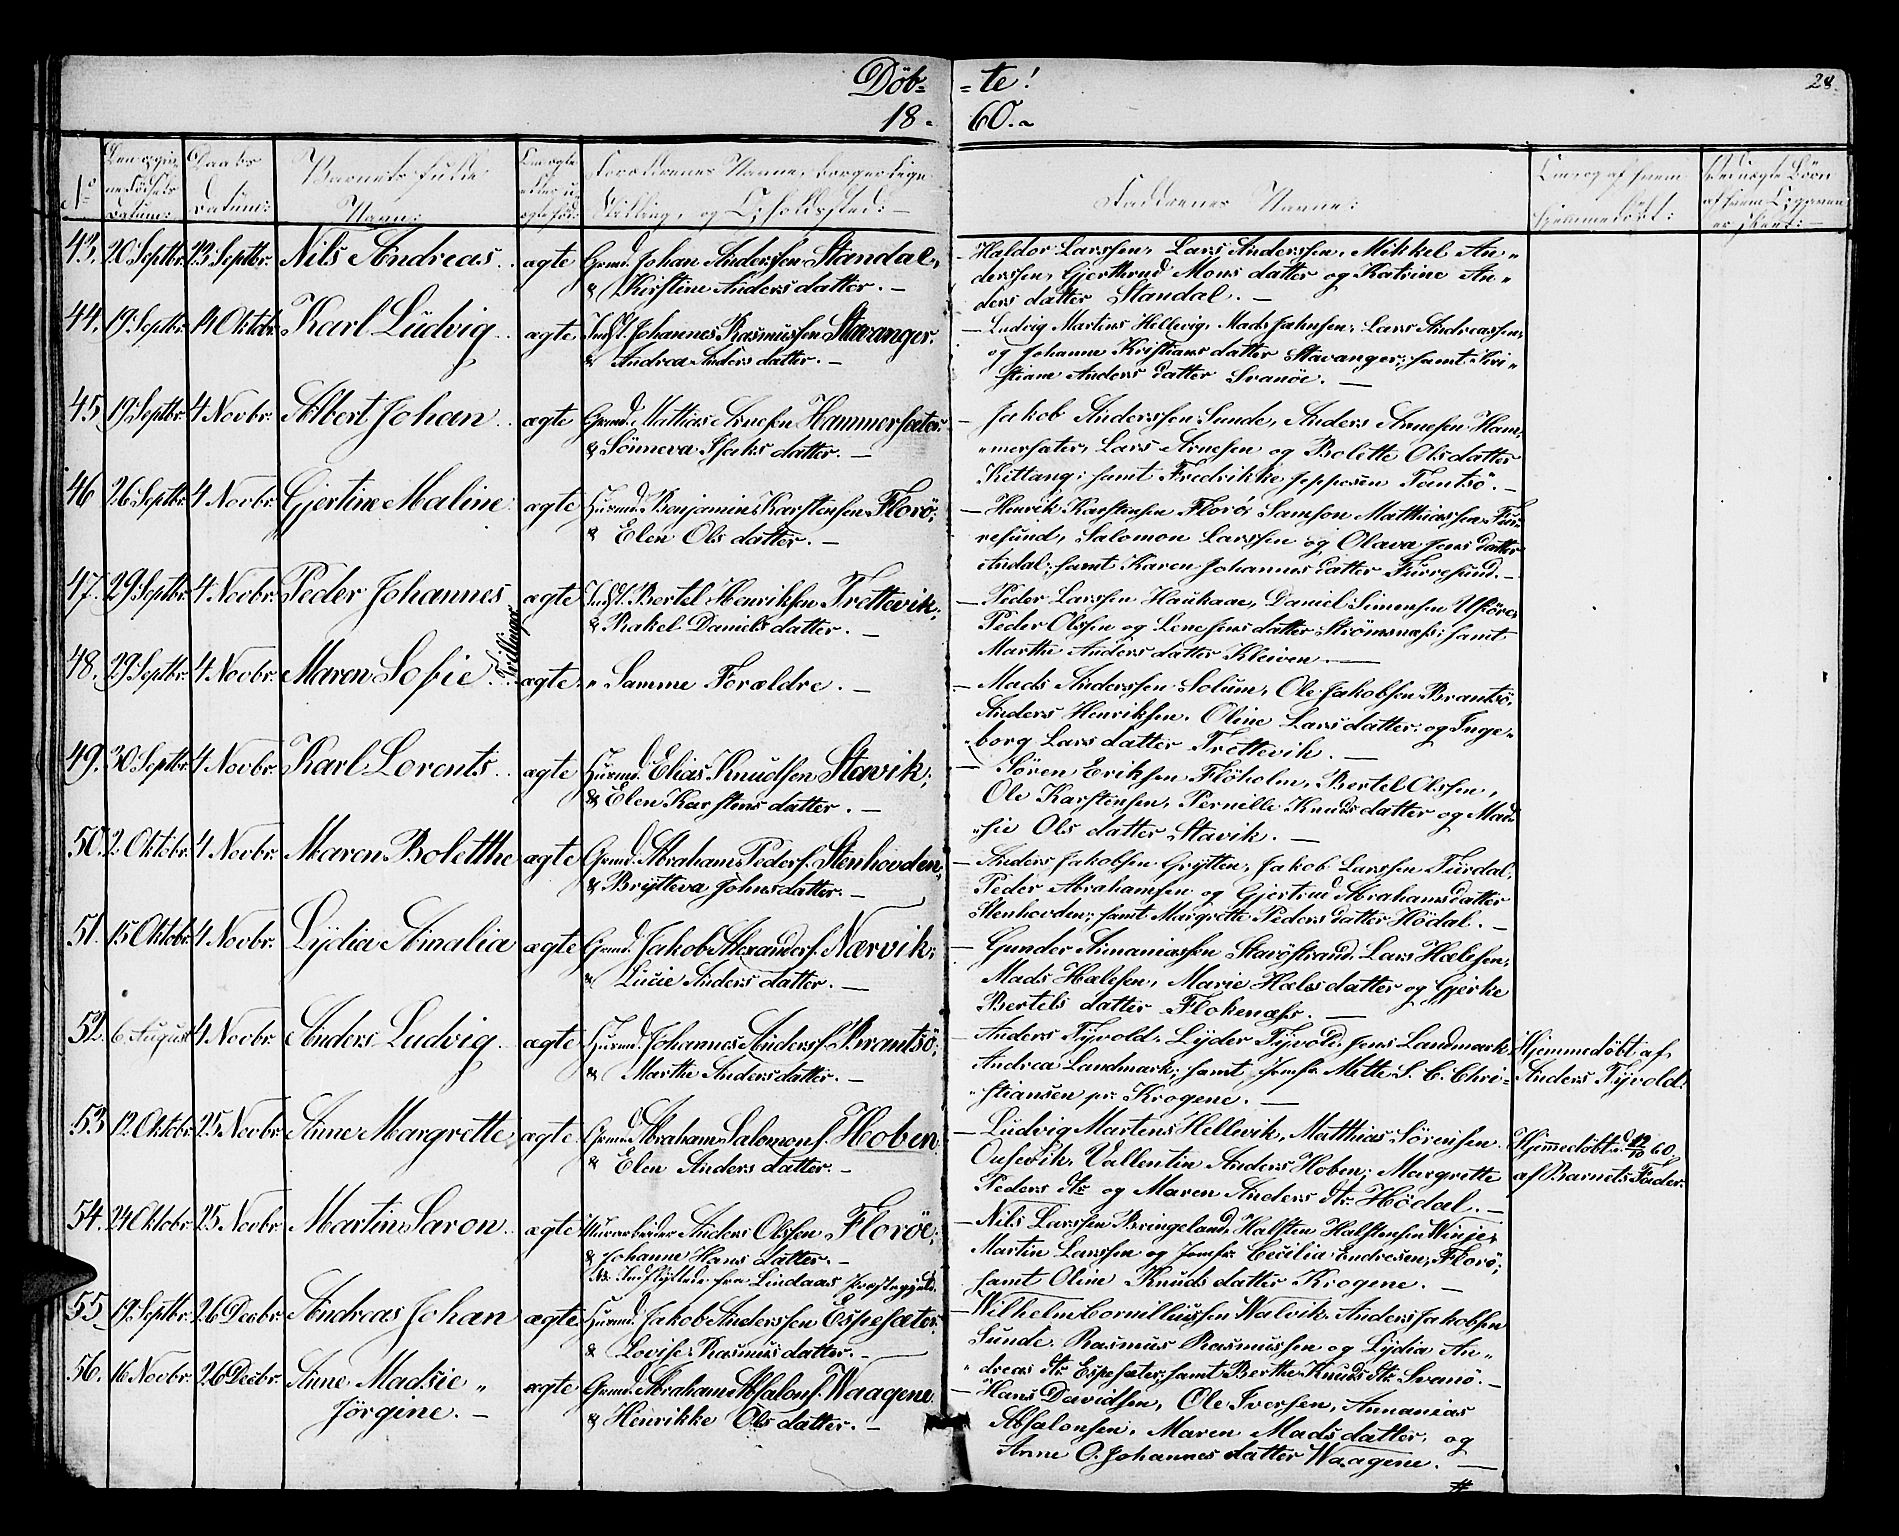 Döb=
-te!
18-
60.-
28.
No
Den opgiv
ne Födsels
Datum:
Daabs
Datum:
Barnets fulde
Navn:
Om ægte
eller u-
ægte föd:
Forældrenes Navne, borgerlige
Stilling, og Opholdssted:-
Faddernes Navne:
Hjemmedöbt:
43. 20 Septbr. 23 Septbr. Nils Andreas.. ægte Grmd. Johan Anderssen Standal,
& Kirstine Andersdatter.-
- Haldor Larssen, Lars Anderssen, Mikkel An-
derssen, Gjerthrud Monsdatter og Katrine An-
dersdatter Standal.-
44. 19. Septbr. 14 Oktobr. Karl Ludvig.. ægte Indst. Johannes Rasmussen Stavanger.
& Andrea Andersdatter.-
- Ludvig Martins Hellevig, Mads Jahnsen, Lars Andreassen,
og Johanne Kristiansdatter Stavanger; samt Kri-
stiane Andersdatter Svanöe.-
45. 19. Septbr. 4 Novbr. Albert Johan.. ægte Grmd. Mathias Arnesen Hammersæter.
& Sönneva Isaksdatter.-
- Jakob Anderssen Sunde, Anders Arnesen Ham-
mersæter, Lars Arnesen og Bolette Olsdatter
Kittang; samt Fredrikke Jeppesen Tantsö.-
46 26 Septbr. 4 Novbr. Gjertine Maline. ægte Husmd. Benjamin Karstensen Florö;
& Elen Olsdatter.-
- Henrik Karstensen Florö, Samson Matthiassen Fur-
resund, Salomon Larssen og Olava Jensdatter
Andal; samt Karen Johannesdatter Furresund.-
47. 29 Septbr. 4 Novbr. Peder Johannes ægte Indst. Bertel Henriksen Trettevik;
& Rakel Danielsdatter.-
- Peder Larssen Haukaae, Daniel Simonsen
Peder Olssen og Lene Jensdatter Strömsnæss; samt
Marthe Andersdatter Kleiven.-
Tvillinger
48. 29 Septbr. 4 Novbr. Maren Sofie. ægte. " Samme Forældre.-
- Mads Anderssen Solum, Ole Jakobsen Brantsö,
Anders Henriksen, Oline Larsdatter og Inge-
borg Larsdatter Trettevik.-
49. 30 Septbr. 4 Novbr. Karl Lorents.. ægte Husmd. Elias Knudssen Stavik;
& Elen Karstensdatter.-
- Sören Eriksen Flöholm, Bertel Olssen,
Ole Karstensen, Pernille Knudsdatter og Mad-
sie Olsdatter Stavik.-
50. 2. Oktobr. 4 Novbr. Maren Boletthe ægte Grmd. Abraham Peders. Stenhovden;
& Brytteva Johnsdatter.-
- Anders Jakobsen Grytten, Jakob Larssen Furdal,
Peder Abrahamsen og Gjertrud Abrahamsdatter
Stenhovden; samt Margrethe Pedersdatter Hödal.-
51. 15 Oktobr. 4 Novbr. Lydia Amalia ægte Grmd. Jakob Alexanders. Nærvik;
& Lucie Andersdatter.-
- Gunder Annaniassen Stavöstrand, Lars Hælesen,
Mads Hælesen, Marie Hælesdatter og Gjerke
Bertelsdatter Flokenæss.-
52. 6 August 4 Novbr. Anders Ludvig. ægte Husmd. Johannes Anders. Brantsö;
& Marthe Andersdatter.-
- Anders Tyvold, Lyder Tyvold, Jens Landmark,
Andrea Landmark; samt Jomfr. Mette S. C. Chri-
stiansen pr. Krogene.-
Hjemmedöbt af
Anders Tyvold.
53 12. Oktobr. 25 Novbr. Anne Margrette, ægte. Grmd. Abraham Salomons. Hoben
& Elen Andersdatter.-
- Ludvig Martens Hellevik, Matthias Sörensen
Ousevik, Vallentin Anders Hoben; Margrette
Peders dtr. og Maren Anders dtr. Hödal.-
Hjemmedöbt d. 12/10 60
af Barnets Fader.
54. 24 Oktobr. 25 Novbr. Martin Saron.. ægte Murarbeider Anders Olssen Floröe;
& Johanne Hansdatter.-
Indflyttede fra Lindaas Præstegjeld.
- Nils Larssen Bringeland, Halsten Halstensen Winje,
Martin Larssen og Jomfr. Cecilia Endresen, Florö;
samt Oline Knudsdatter Krogene.-
55. 19. Septbr. 26 Decbr. Andreas Johan ægte Husmd. Jakob Anderssen Espesæter;
& Lovise Rasmusdatter.-
- Wilhelm Cornilliussen Walvik, Anders Jakobsen
Sunde, Rasmus Rasmussen og Lydia An-
dreas dtr. Espesæter; samt Berthe Knuds dtr. Svanö.-
56. 16 Novbr. 26 Decbr. Anne Madsie "
Jörgine.-
ægte Grmd. Abraham Absalons. Waagene
& Henrikke Olsdatter.-
- Hans Davidsen, Ole Iversen, Annanias
Absalonsen, Maren Madsdatter, og
Anne O. Johannesdatter Waagene.-
#